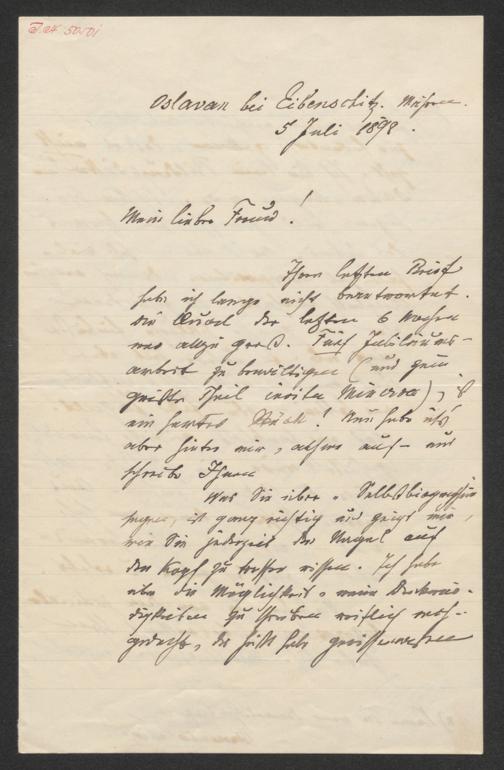 Oslavan bei Eibenschitz. Mähren.
5 Juli 1898.
Mein lieber Freund!
Ihren letzten Brief
habe ich lange nicht beantwortet.
Die Qual der letzten 6 Wochen
war allzu groß. Fünf Jubiläums-
arbeit zu bewältigen (und zum
größten Theil invita Minerva),
ein hartes Stück! Nun habe ich's
aber hinter mir, athme auf und
schreibe Ihnen
Was Sie über Selbstbiographien
sagen, ist ganz richtig und zeigt mir,
wie Sie jederzeit den Nagel auf
den Kopf zu treffen wissen. Ich habe
über die Möglichkeit, meine Denkwür-
digkeiten zu schreiben reiflich nach-
gedacht, der